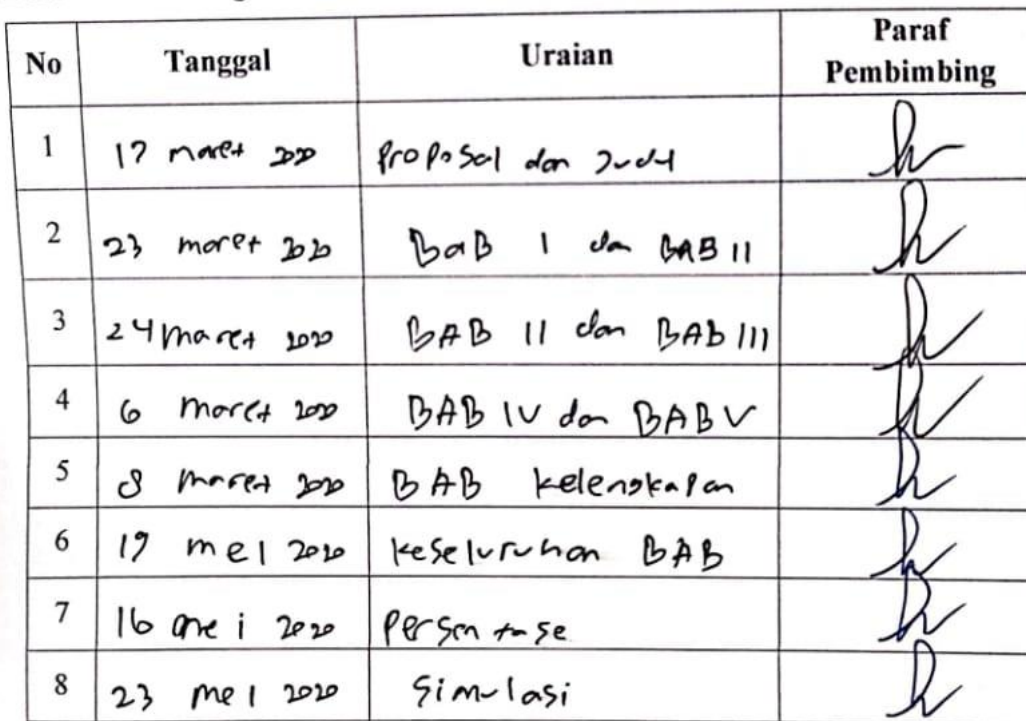 No Tanggal Uraian Paraf Pembimbing
1 17 maret 2020 Proposal dan Judul
2 23 maret 2020 BaB I dan BAB II
3 24 maret 2020 BAB II dan BAB III
4 6 maret 2020 BAB IV dan BAB V
5 8 maret 2020 BAB kelengkapan
6 19 mei 2020 keseluruhan BAB
7 16 mei 2020 Persentase
8 23 mei 2020 Simulasi